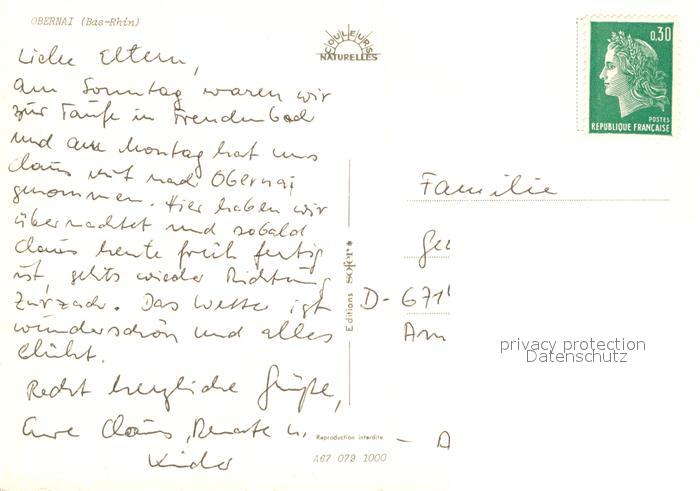 OBERNAI (Bas-Rhin)
COULEURS
NATURELLES
0,30
POSTES
REPUBLIQUE FRANÇAISE
Liebe Eltern,
am Sonntag waren wir
zur Taufe in Freudenbad
und am Montag hat uns
Claus mit nach Obernai
genommen. Hier haben wir
übernachtet und sobald
Claus heute früh fertig
ist, gehts wieder Richtung
Zurzach. Das Wetter ist
wunderschön und alles
blüht.
Recht herzliche Grüße,
Eure Claus, Renate u.
Kinder
Editions sofer
Reproduction interdite
A67 079 1000
Familie
D-671
Am
privacy protection
Datenschutz